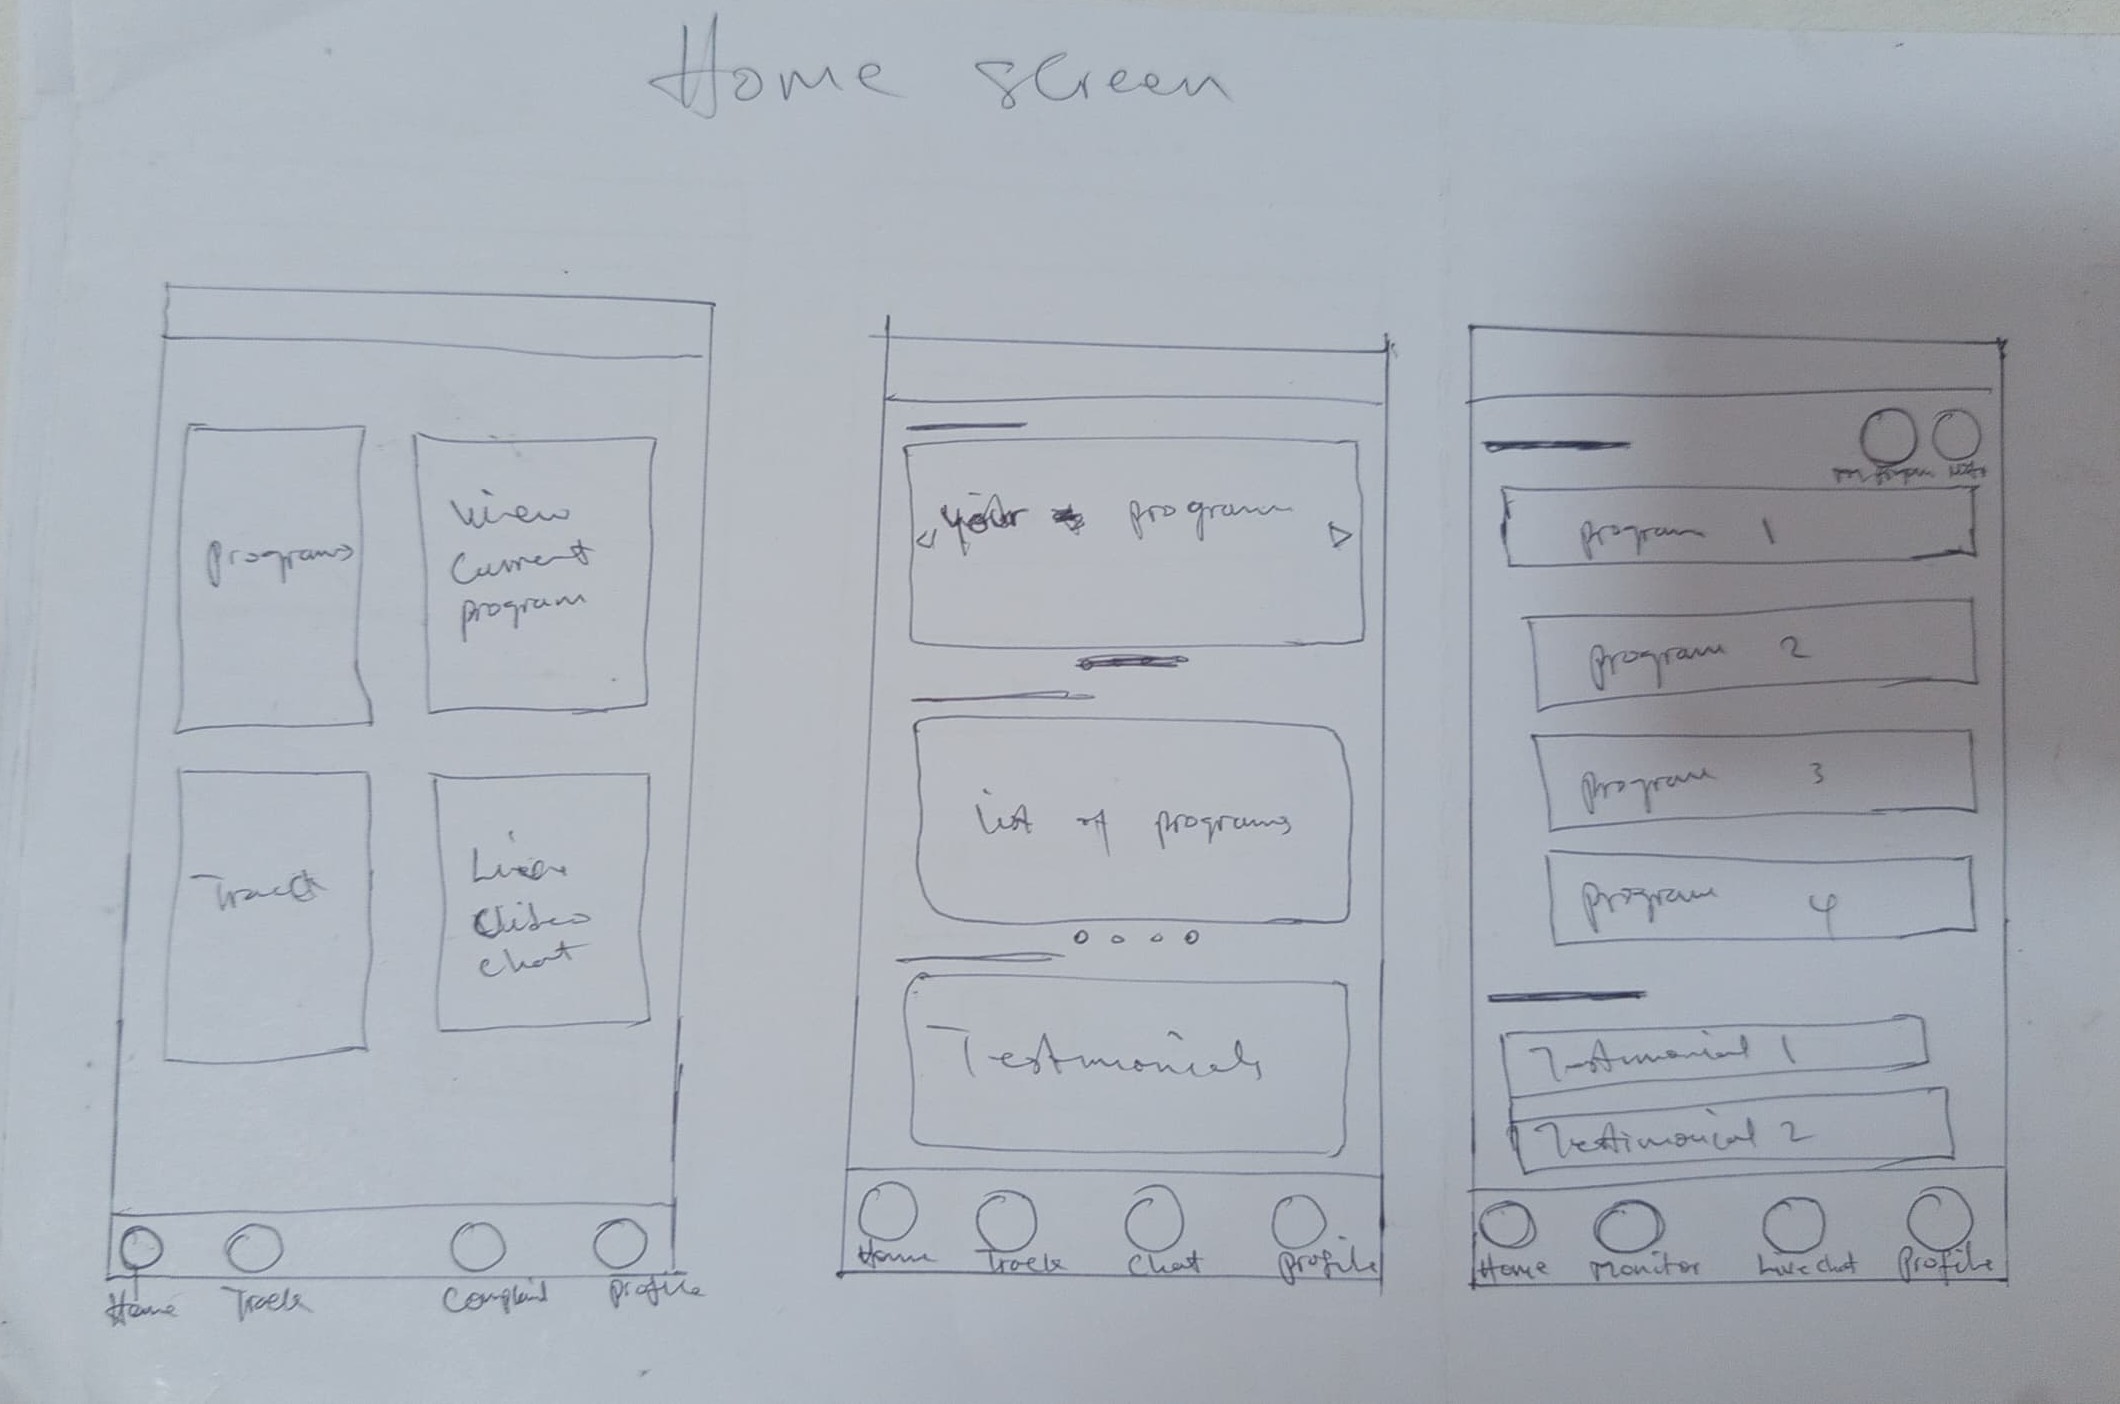 Home screen
Programs
View
Current
program
Track
Live
chat
Home Track Complaint Profile
your program
List of programs
Testimonials
Home Track Chat Profile
Program 1
Program 2
Program 3
Program 4
Testimonial 1
Testimonial 2
Home Monitor Live chat Profile